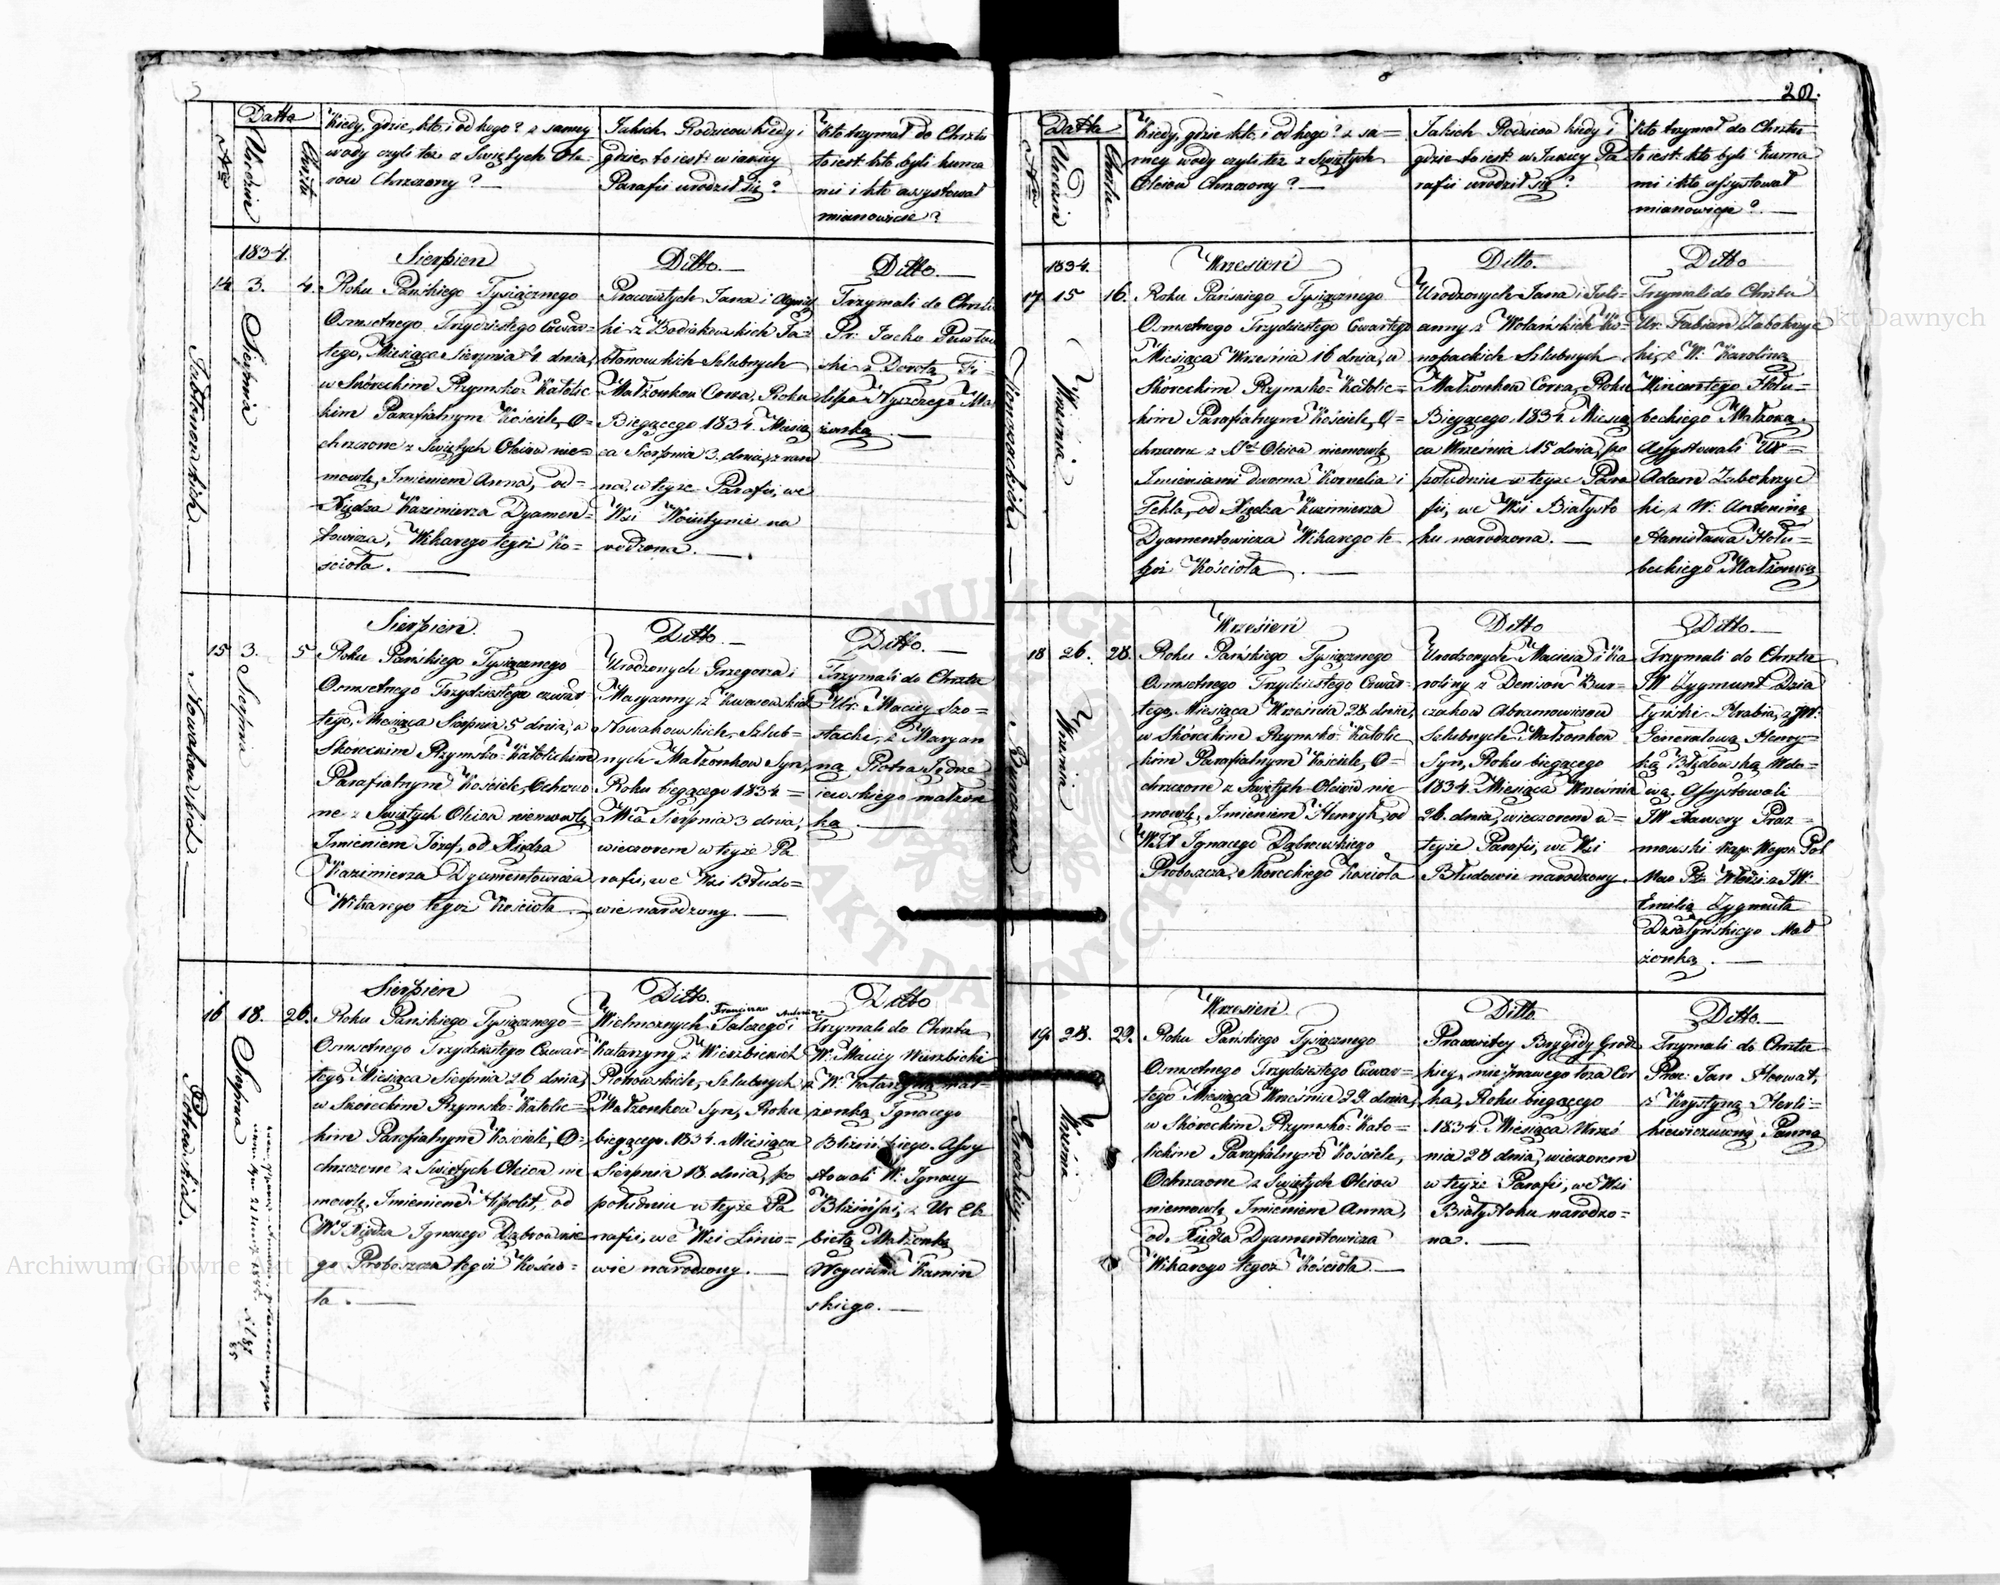 Datta
No
Urodzin
Chrztu
Kiedy, gdzie, kto, i od kogo? z samey
wody czyli też z Swiętych Ole-
iow Chrzczony? —
Jakich Rodzicow kiedy i
gdzie, to iest: w iakiey
Parafii urodził się?
Kto trzymał do Chrztu
to iest: kto byli kuma
mi i kto assystował
mianowicie?
1834.
14 3. 4.
Sierpnia
Jabłonowskich
Sierpien
Roku Pańskiego Tysiącznego
Osmsetnego Trzydziestego Czwar=
tego, Miesiąca Sierpnia 4. dnia,
w Skóreckim Rzymsko-Katolic
kim Parafialnym Kościele, O=
chrzczone z Swiętych Oleiow nie=
mowlę, Imieniem Anna, od=
Xiędza Kazimierza Dyamen=
towicza, Wikarego tegoż Ko=
scioła. —
Ditto. —
Pracowitych Jana i
ki z Ja=
błonowskich Szlubnych
Małżonkow Corka, Roku
Biegącego 1834. Miesią
ca Sierpnia 3. dnia, z ran
na, w teyze Parafii, we
Wsi Woitynie na
rodzona. —
Ditto. —
Trzymali do Chrztu
Pr: Jacko
ski z Dorotą Fi=
lipa Ma
żonką —
15 3. 5
Sierpnia
Nowakowskich
Sierpień.
Roku Pańskiego Tysiącznego
Osmsetnego Trzydziestego czwar
tego, Miesiąca Sierpnia 5 dnia, w
Skóreckim Rzymsko-Katolickim
Parafialnym Kościele, Ochrzczo
ne z Swiętych Oleiow niemowlę
Imieniem Józef, od Xiędza
Kazimierza Dyamentowicza
Wikarego tegoż Kościoła. —
Ditto. —
Urodzonych Grzegorza i
Maryanny z
Nowakowskich, Szlub=
nych Małżonkow Syn,
Roku biegącego 1834 =
Mca Sierpnia 3 dnia,
wieczorem w teyże Pa
rafii, we Wsi Błudo=
wie narodzony. —
Ditto. —
Trzymali do Chrztu
Ur: Maciey Szo=
stacki, z Maryan
ną Piotra Jędrze
iewskiego małżon
ką —
16 18. 26.
Sierpnia
Rotkowskich.
Sierpien
Roku Pańskiego Tysiącznego =
Osmsetnego Trzydziestego Czwar=
tego, Miesiąca Sierpnia 26 dnia,
w Skóreckim Rzymsko-Katolic=
kim Parafialnym Kościele, O=
chrzczone z Swiętych Oleiow nie
mowlę, Imieniem Hipolit, od
WJXiędza Ignacego Dąbrowskie
go Proboszcza tegoż Koscio=
ła. —
Ditto.
Franciszka
Wielmożnych i
Katarzyny z Wierzbickich
Szlubnych
Małżonkow Syn, Roku
biegącego 1834. Miesiąca
Sierpnia 18 dnia, po
południu w teyże Pa
rafii, we Wsi Linio=
wie narodzony. —
Ditto
Trzymali do Chrztu
W: Maciey Wierzbicki
z W: Katarzyną mał=
żonką Ignacego
Blizińskiego. Assy
stowali W: Ignacy
Bliziński, z Ur: Elż
bietą Małżonką
Woyciecha Kamin
skiego. —
202.
Datta
No
Urodzin
Chrztu
Kiedy, gdzie, kto, i od kogo? z sa=
mey wody czyli też z Swiętych
Oleiow Chrzczony? —
Jakich Rodzicow kiedy i
gdzie to iest: w Jakiey Pa
rafii urodził się?
Kto trzymał do Chrztu
to iest: kto byli Kuma
mi i kto assystował
mianowicie? —
1834.
17 15 16.
Września
Konopackich
Wrzesień
Roku Pańskiego Tysiącznego
Osmsetnego Trzydziestego Czwartego
Miesiąca Września 16 dnia, w
Skóreckim Rzymsko-Katolic=
kim Parafialnym Kościele, O=
chrzczone z Stych Oleiow niemowlę
Imieniami dwoma Kornelia i
Tekla, od Xiędza Kazimierza
Dyamentowicza Wikarego te-
goż Kościoła. —
Ditto.
Urodzonych Jana i Juli=
anny z Wolańskich Ko=
nopackich Szlubnych
Małżonkow Corka, Roku
Biegącego 1834. Miesią
ca Września 15 dnia, po
południu w teyże Para
fii, we Wsi Białysto
ku narodzona. —
Ditto
Trzymali do Chrztu
Ur: Fabian Zabokrzyc
ki, z W: Karoliną
Wincentego Hołu=
beckiego Małżonką.
Assystowali Ur=
Adam Zabokrzyc
ki, z W: Antoniną
Stanisława Hołu=
beckiego Małżonką
18 26. 28.
Września
Wrzesień
Roku Pańskiego Tysiącznego
Osmsetnego Trzydziestego Czwar=
tego, Miesiąca Września 28 dnia,
w Skóreckim Rzymsko-Katolic
kim Parafialnym Kościele, O=
chrzczone z Swiętych Oleiow nie=
mowlę, Imieniem Henryk, od
WJX Ignacego Dąbrowskiego
Proboszcza, Skoreckiego Kościoła
Ditto
Urodzonych Macieia i Ka
roliny z Denisow Bur=
czakow Abramowiczow
Szlubnych Małżonkow
Syn, Roku biegącego
1834. Miesiąca Września
26. dnia, wieczorem w=
teyże Parafii, we Wsi
Błudowie narodzony. —
Ditto. —
Trzymali do Chrztu
JW Zygmunt Dzia
łyński Hrabia, z JW:
Generałową Henry=
ką Błędowską Wdo=
wą. Assystowali
JW Xawery Praz=
mowski
Emilią Zygmunta
Działyńskiego Mał
żonką. —
19 28. 29.
Września
Grockiey.
Wrzesień
Roku Pańskiego Tysiącznego
Osmsetnego Trzydziestego Czwar=
tego Miesiąca Września 29. dnia,
w Skóreckim Rzymsko-Kato=
lickim Parafialnym Kościele,
Ochrzczone z Swiętych Oleiow
niemowlę Imieniem Anna,
od Xiędza Dyamentowicza
Wikarego tegoż Kościoła. —
Ditto.
Pracowitey Brygidy Grodz
kiey, nieprawego łoża Cor
ka, Roku biegącego
1834. Miesiąca Wrześ
nia 28 dnia, wieczorem
w teyże Parafii, we Wsi
Białystoku narodzo=
na. —
Ditto. —
Trzymali do Chrztu
Prac: Jan Horwat,
z Krystyną
Panną
Archiwum Główne Akt Dawnych
Archiwum Główne Akt Dawnych